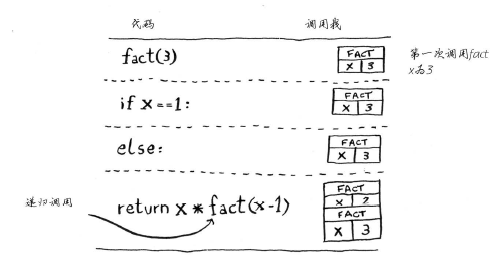 代码 调用栈
fact(3)
FACT
X 3
第一次调用fact
x为3
if x==1:
FACT
X 3
else:
FACT
X 3
递归调用
return x * fact(x-1)
FACT
X 2
FACT
X 3